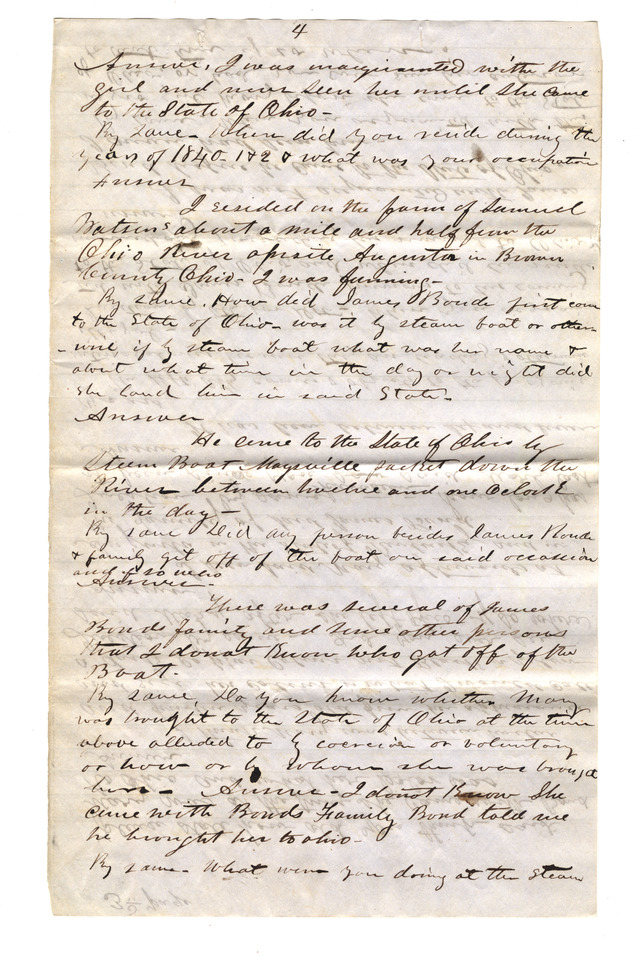 4
Answer. I was unaquainted withe the
girl and never seen her until she came
to the State of Ohio -
By same - Where did you reside during the
years of 1840- 1 & 2 & what was your occupation
Answer
I resided on the farm of Samuel
Watson's about a mile and half from the
Ohio River oposite Augusta in Brown
County Ohio - I was farming -
By same. How did James Bonde first come
to the State of Ohio - was it by steam boat or other-
-wise, if by steam boat what was her name &
about what time in the day or night did
she land him in said State -
Answer
He came to the State of Ohio by
Steem Boat Maysville packet down the
River between twelve and one Oclock
in the day -
By same Did any person besides James Bonde
& family get off of the boat on said occasion
and if so who
Answer -
There was several of James
Bonds family and some other persons
that I donat Know who got off of the
Boat.
By same, Do you know whether Mary
was brought to the State of Ohio at the time
above alluded to by coercion or voluntary
or how or by whom she was brought
here - Answer - I donot Know She
came with Bonds Family Bond told me
he brought her to ohio -
By same - What were you doing at the Steam